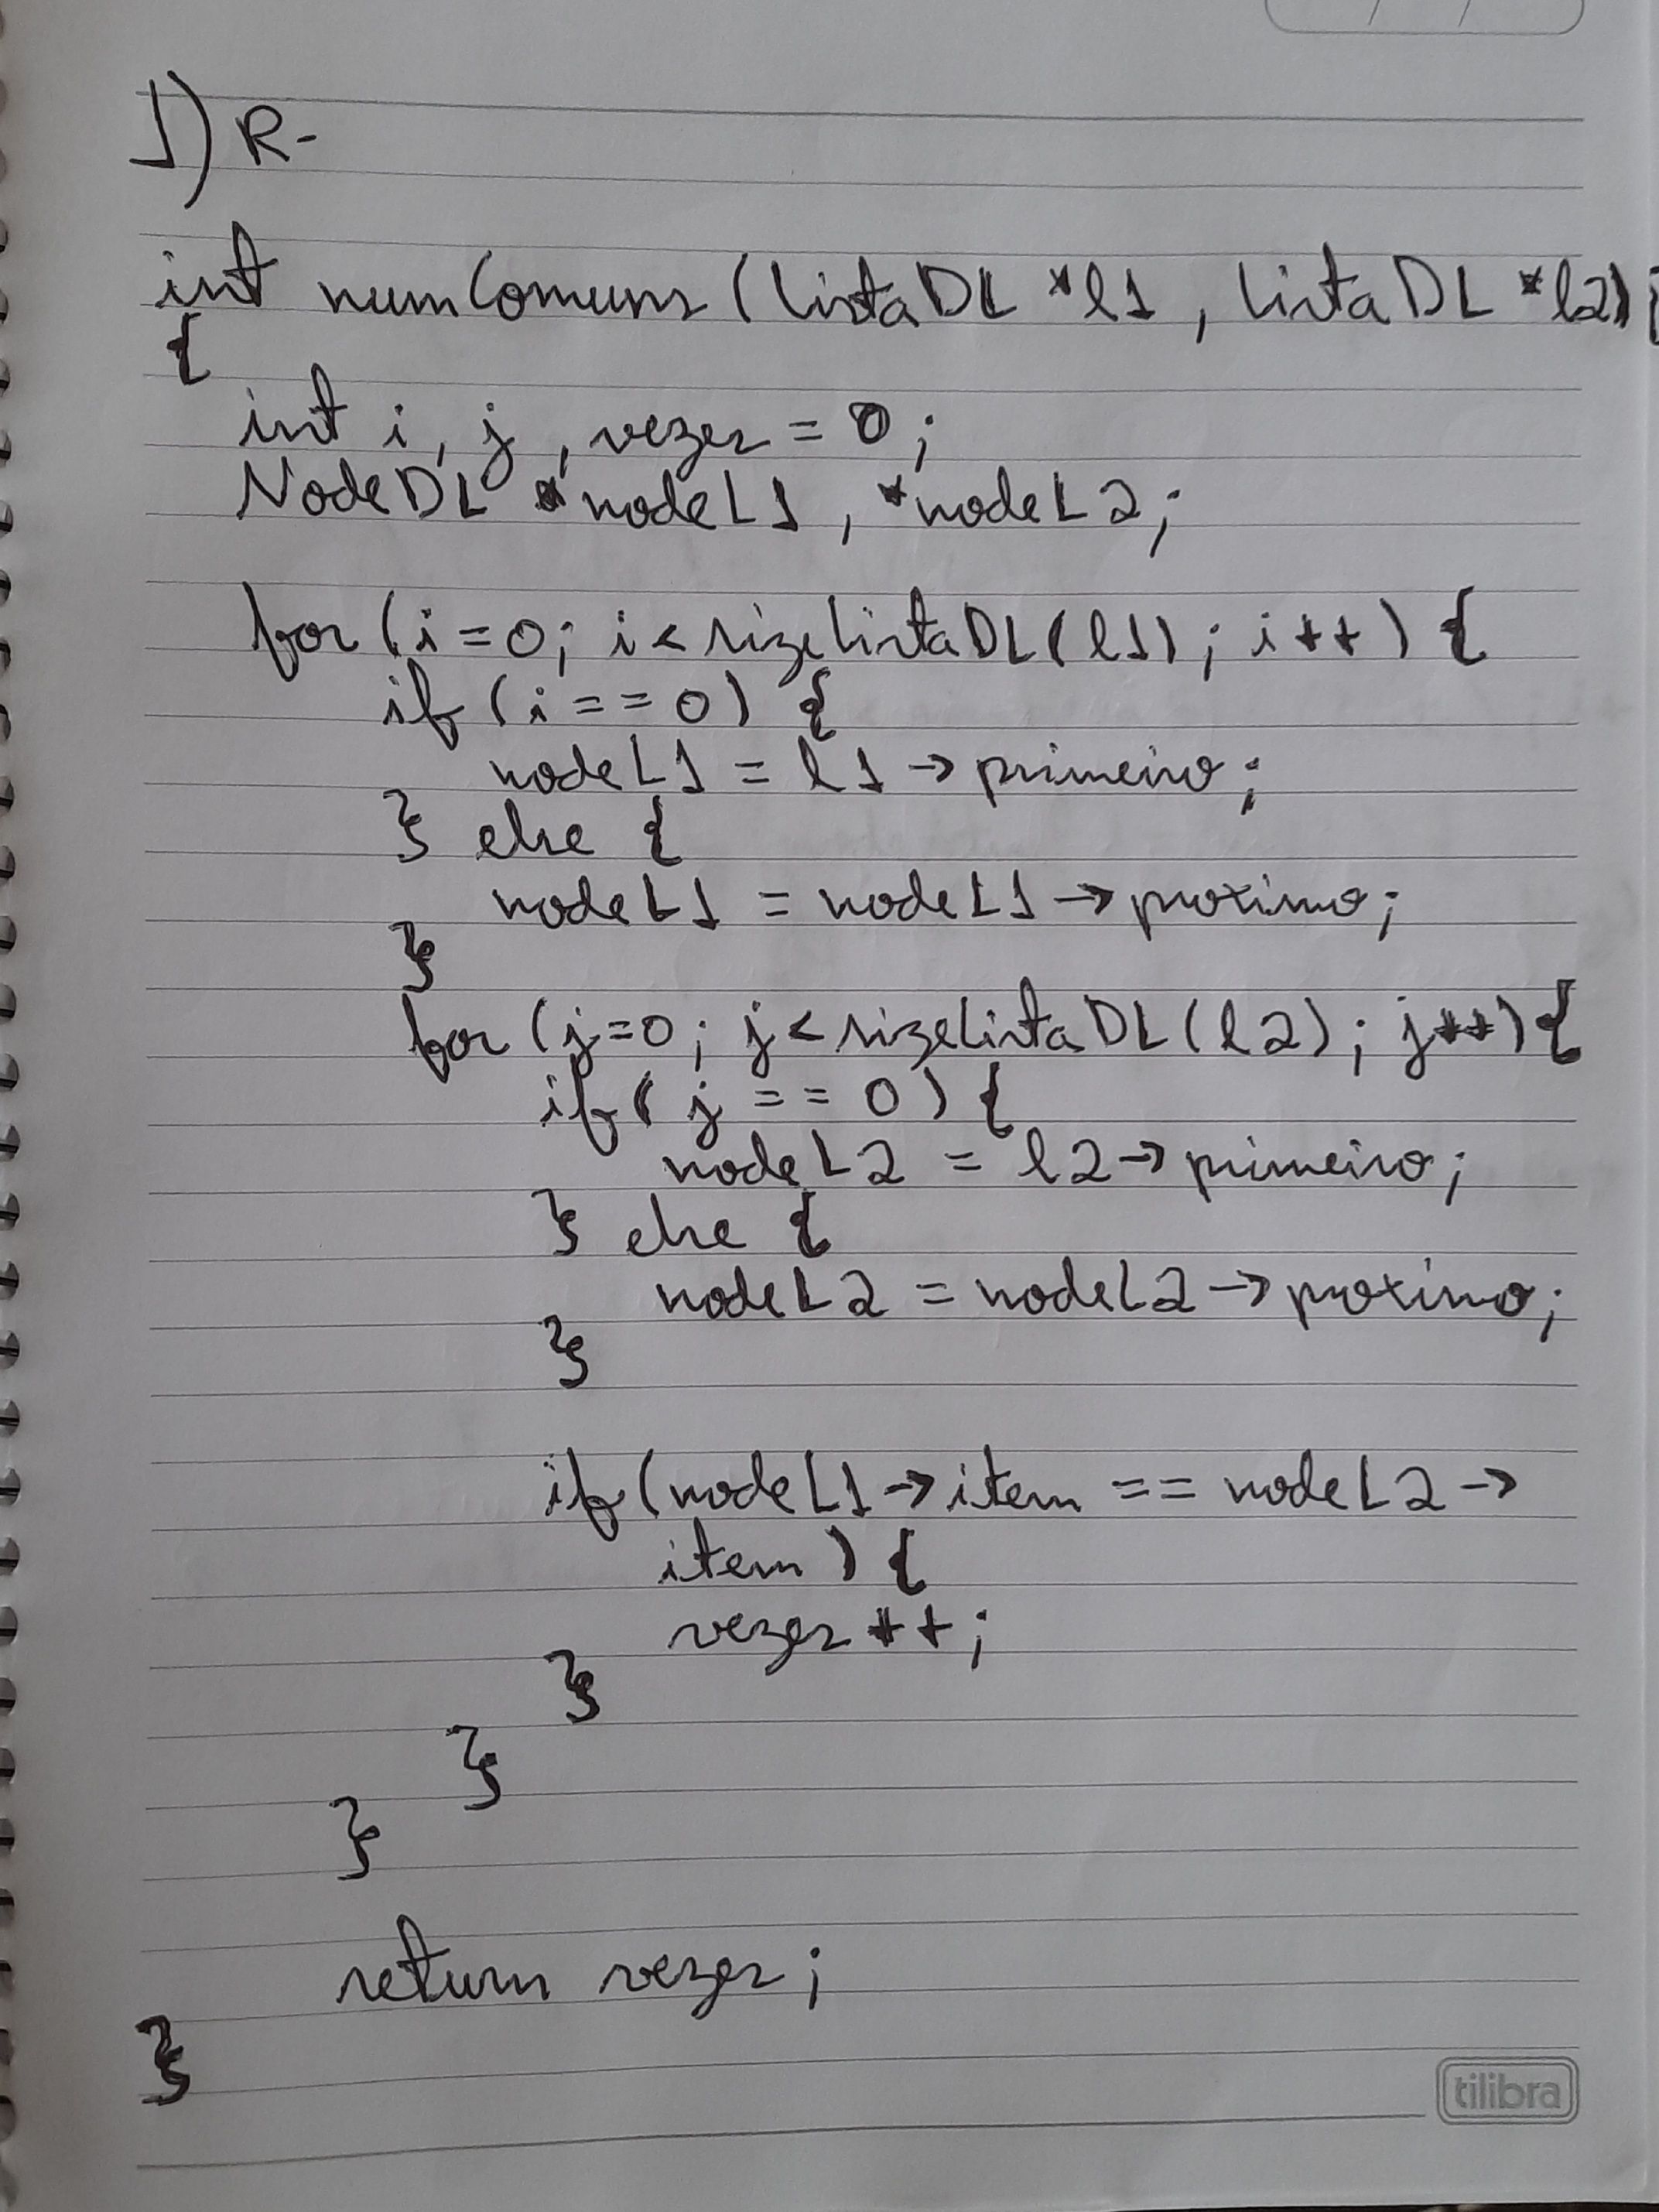 1) R-
int numComuns (listaDL *l1, listaDL *l2)
{
int i, j, vezes = 0;
NodeDL *nodeL1, *nodeL2;
for (i=0; i<sizeListaDL(l1); i++) {
if (i==0) {
nodeL1 = l1->primeiro;
} else {
nodeL1 = nodeL1->proximo;
}
for (j=0; j<sizeListaDL(l2); j++){
if (j==0) {
nodeL2 = l2->primeiro;
} else {
nodeL2 = nodeL2->proximo;
}
if (nodeL1->item == nodeL2->
item) {
vezes++;
}
}
}
return vezes;
}
tilibra